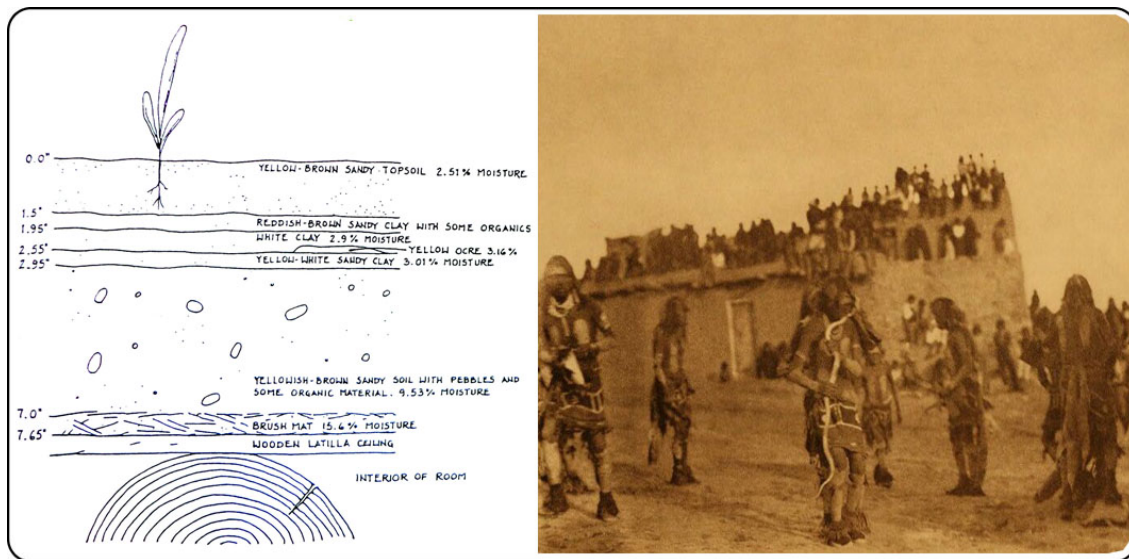 0.0"
YELLOW-BROWN SANDY TOPSOIL 2.51% MOISTURE
1.5"
REDDISH-BROWN SANDY CLAY WITH SOME ORGANICS
1.95"
WHITE CLAY 2.9% MOISTURE
2.55"
YELLOW OCRE 3.16%
YELLOW-WHITE SANDY CLAY 3.01% MOISTURE
2.95"
YELLOWISH-BROWN SANDY SOIL WITH PEBBLES AND
SOME ORGANIC MATERIAL. 9.53% MOISTURE
7.0"
BRUSH MAT 15.6% MOISTURE
7.65"
WOODEN LATILLA CEILING
INTERIOR OF ROOM